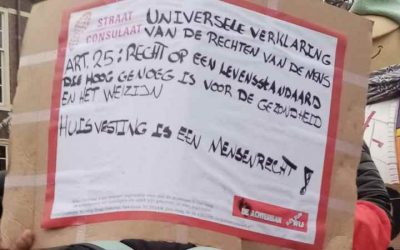 STRAAT
CONSULAAT
UNIVERSELE VERKLARING
VAN DE RECHTEN VAN DE MENS
ART. 25: RECHT OP EEN LEVENSSTANDAARD
DIE HOOG GENOEG IS VOOR DE GEZONDHEID
EN HET WELZIJN
HUISVESTING IS EEN MENSENRECHT!
DE ACHTERBAN